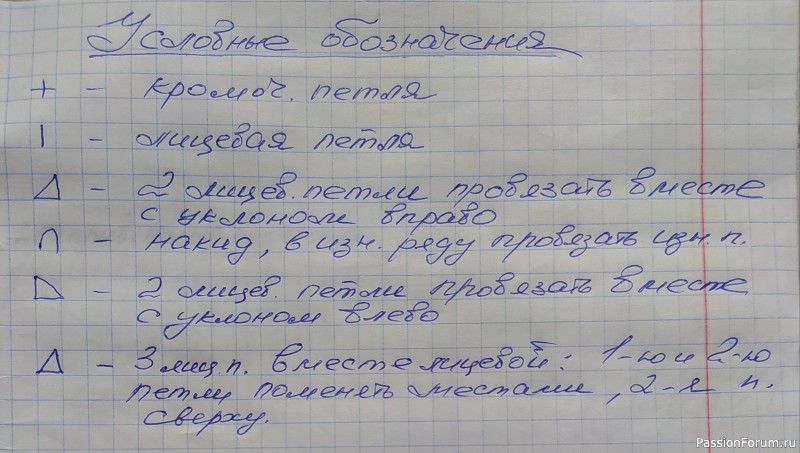 Условные обозначения
+ - кромоч. петля
| - лицевая петля
△ - 2 лицев. петли провязать вместе
с уклоном вправо
∩ - накид, в изн. ряду провязать изн. п.
◺ - 2 лицев. петли провязать вместе
с уклоном влево
△ - 3 лиц п. вместе лицевой: 1-ю и 2-ю
петли поменять местами, 2-я п.
сверху.
PassionForum.ru